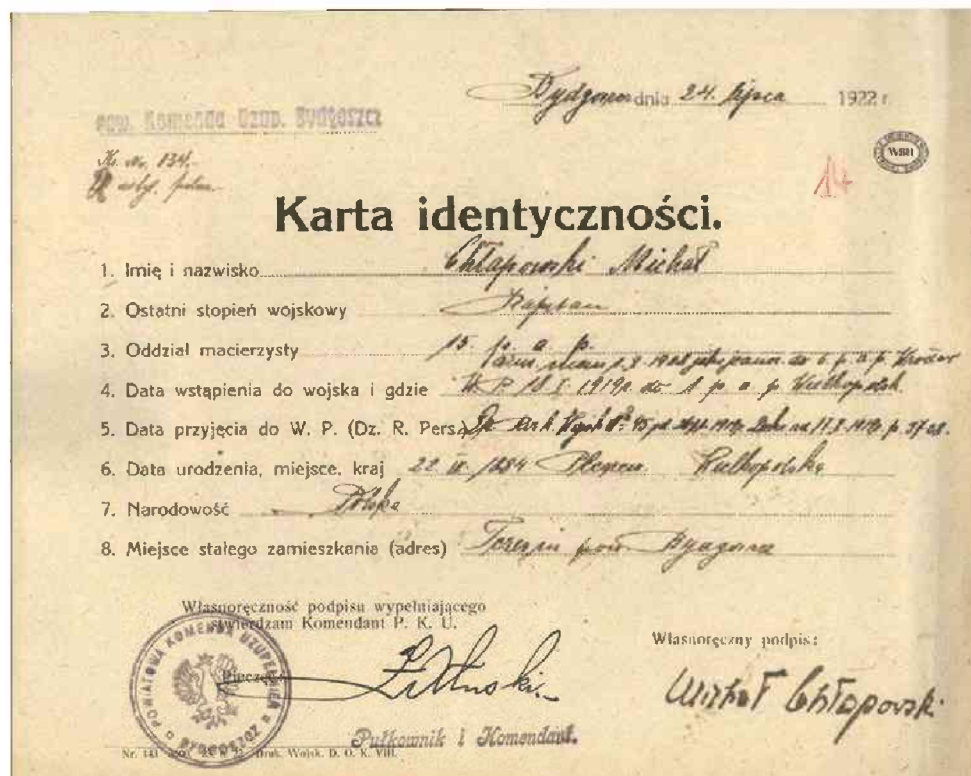 Bydgoszcz dnia 24. lipca 1922 r.
pow. Komenda Uzup. Bydgoszcz
WBH
Nr. 134.
14
Karta identyczności.
1. Imię i nazwisko Chłapowski Michał
2. Ostatni stopień wojskowy Kapitan
3. Oddział macierzysty 15. p. a. p.
4. Data wstąpienia do wojska i gdzie W. P. 10 I. 1919 r. do 1 p. a. p. Wielkopolsk.
5. Data przyjęcia do W. P. (Dz. R. Pers.)
6. Data urodzenia, miejsce, kraj 22 1884 Wielkopolska
7. Narodowość Polska
8. Miejsce stałego zamieszkania (adres) Teresin pow Bydgoszcz
Własnoręczność podpisu wypełniającego
stwierdzam Komendant P. K. U.
Własnoręczny podpis:
POWIATOWA KOMENDA UZUPEŁNIEŃ BYDGOSZCZ
Pieczęć
Michał Chłapowski
Pułkownik i Komendant.
Nr. 143 Druk. Wojsk. D. O. K. VIII.